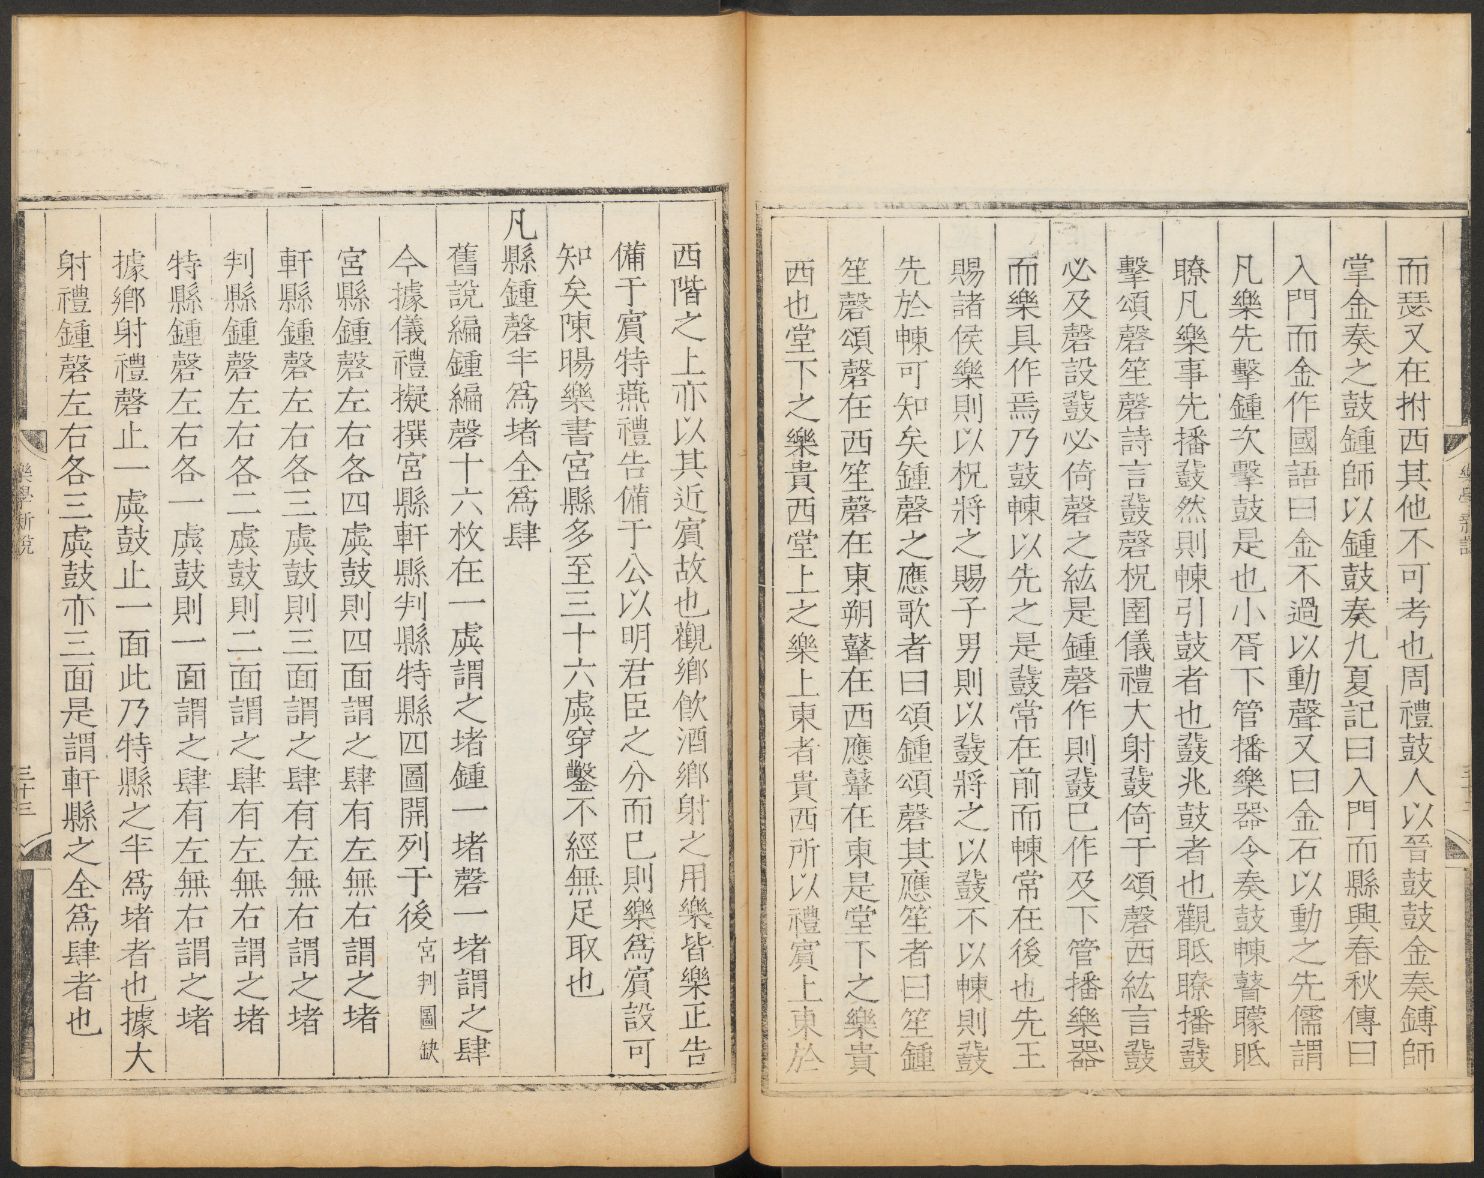 而瑟又在拊西其他不可考也周禮鼓人以晉鼓鼓金奏鎛師
掌金奏之鼓鍾師以鍾鼓奏九夏記曰入門而縣興春秋傳曰
入門而金作國語曰金不過以動聲又曰金石以動之先儒謂
凡樂先擊鍾次擊鼓是也小胥下管播樂器令奏鼓𣌾瞽矇眡
瞭凡樂事先播鼗然則𣌾引鼓者也鼗兆鼓者也觀眡瞭播鼗
擊頌磬笙磬詩言鼗磬柷圉儀禮大射鼗倚于頌磬西紘言鼗
必及磬設鼗必倚磬之紘是鍾磬作則鼗已作及下管播樂器
而樂具作焉乃鼓𣌾以先之是鼗常在前而𣌾常在後也先王
賜諸侯樂則以柷將之賜子男則以鼗將之以鼗不以𣌾則鼗
先於𣌾可知矣鍾磬之應歌者曰頌鍾頌磬其應笙者曰笙鍾
笙磬頌磬在西笙磬在東朔鼙在西應鼙在東是堂下之樂貴
西也堂下之樂貴西堂上之樂上東者貴西所以禮賓上東於
西階之上亦以其近賓故也觀鄉飲酒鄉射之用樂皆樂正告
備于賓特燕禮告備于公以明君臣之分而已則樂為賓設可
知矣陳暘樂書宮縣多至三十六虡穿鑿不經無足取也
凡縣鍾磬半為堵全為肆
舊說編鍾編磬十六枚在一虡謂之堵鍾一堵磬一堵謂之肆
今據儀禮擬撰宮縣軒縣判縣特縣四圖開列于後宮判圖缺
宮縣鍾磬左右各四虡鼓則四面謂之肆有左無右謂之堵
軒縣鍾磬左右各三虡鼓則三面謂之肆有左無右謂之堵
判縣鍾磬左右各二虡鼓則二面謂之肆有左無右謂之堵
特縣鍾磬左右各一虡鼓則一面謂之肆有左無右謂之堵
據鄉射禮磬止一虡鼓止一面此乃特縣之半為堵者也據大
射禮鍾磬左右各三虡鼓亦三面是謂軒縣之全為肆者也
樂學新說
三十三